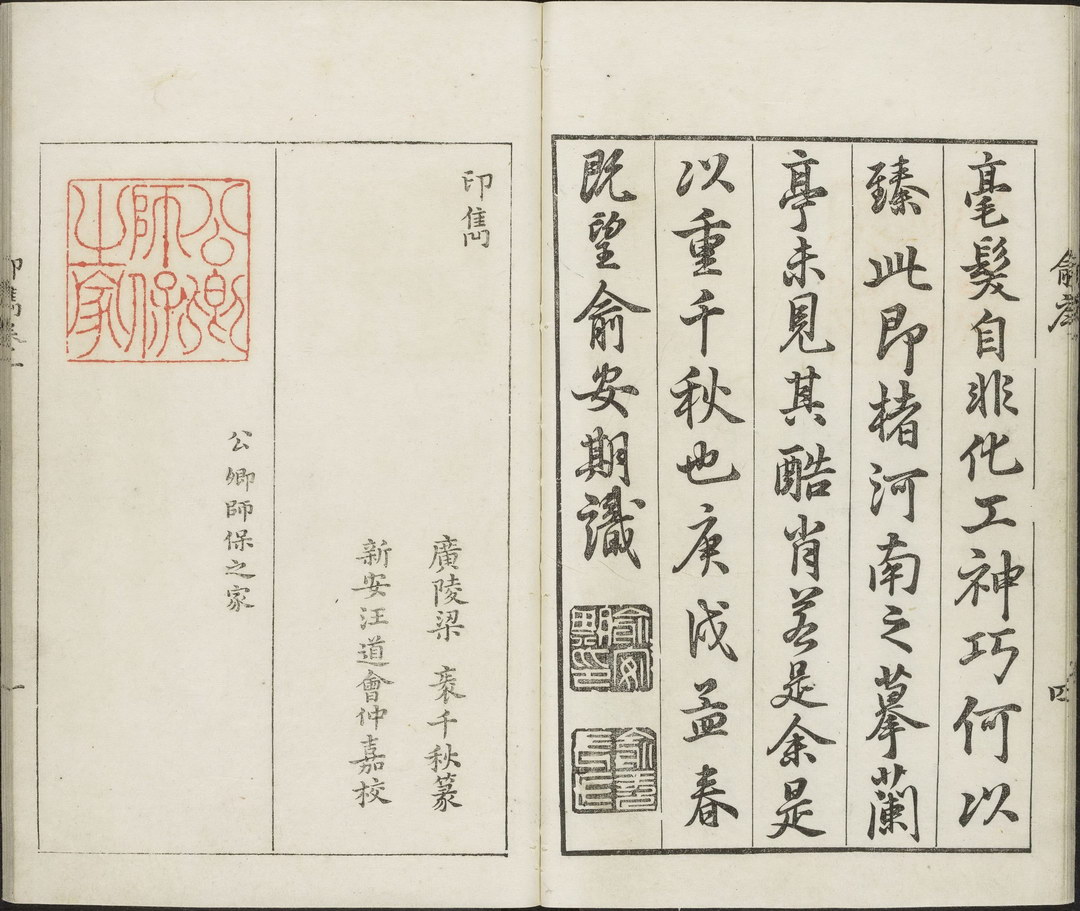 毫髮自非化工神巧何以
臻此即楮河南之摹蘭
亭未見其酷肖若是余是
以重千秋也庚戌孟春
既望俞安期識
俞安期印
四
印雋
廣陵梁袠千秋篆
新安汪道會仲嘉校
公卿師保之家
公卿師保之家
印雋卷一
一